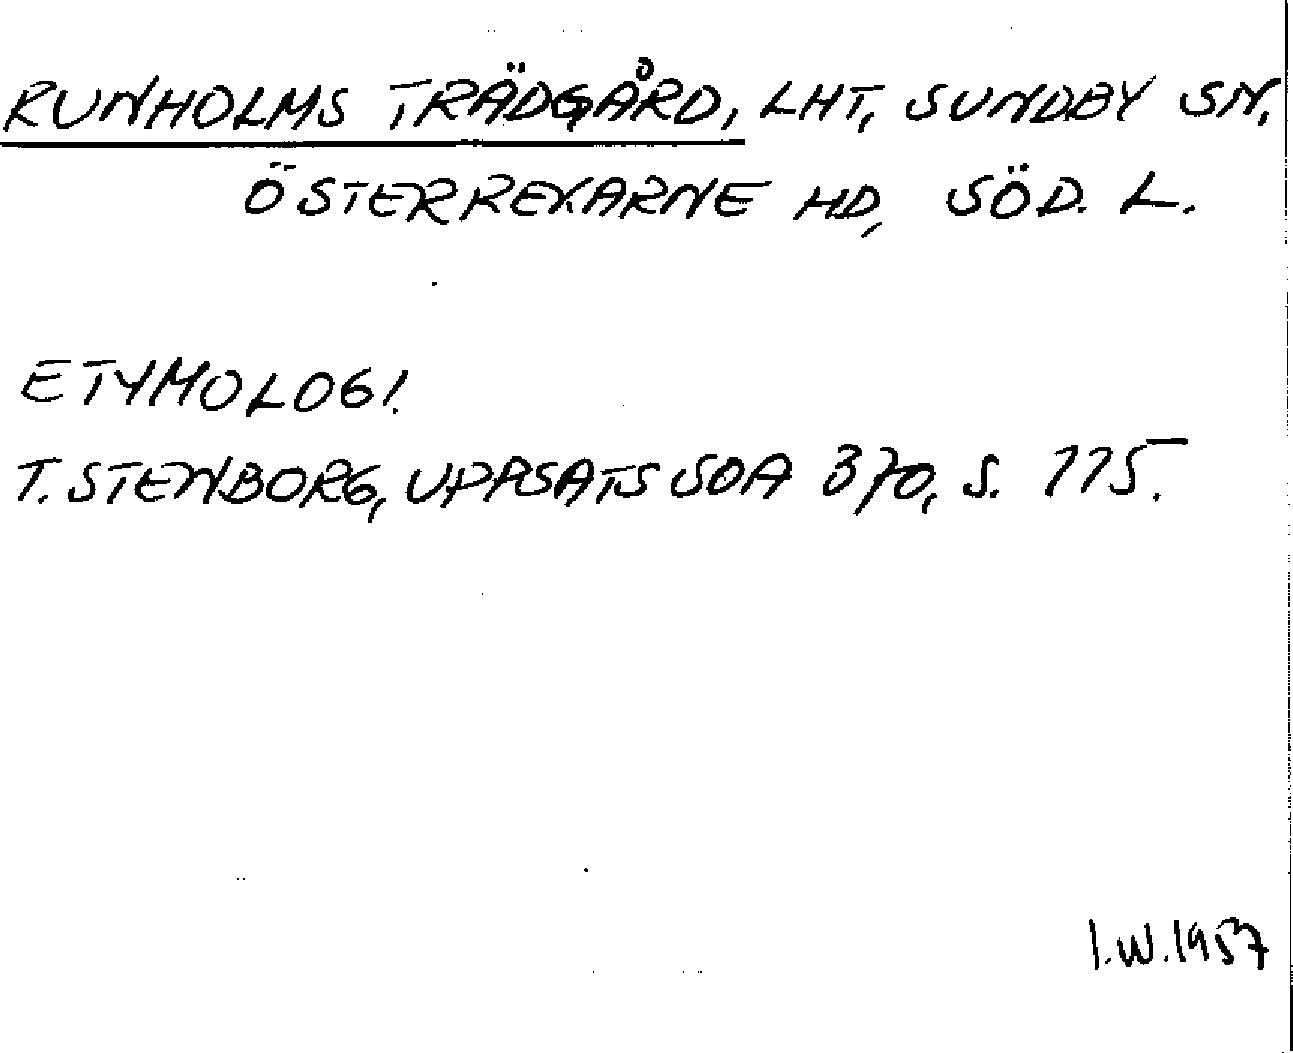 RUNHOLMS TRÄDGÅRD, LHT, SUNDBY SN,
ÖSTERREKARNE HD, SÖD. L.
ETYMOLOGI.
T. STENBORG, UPPSATS SOA 370, S. 115.
I.W. 1957